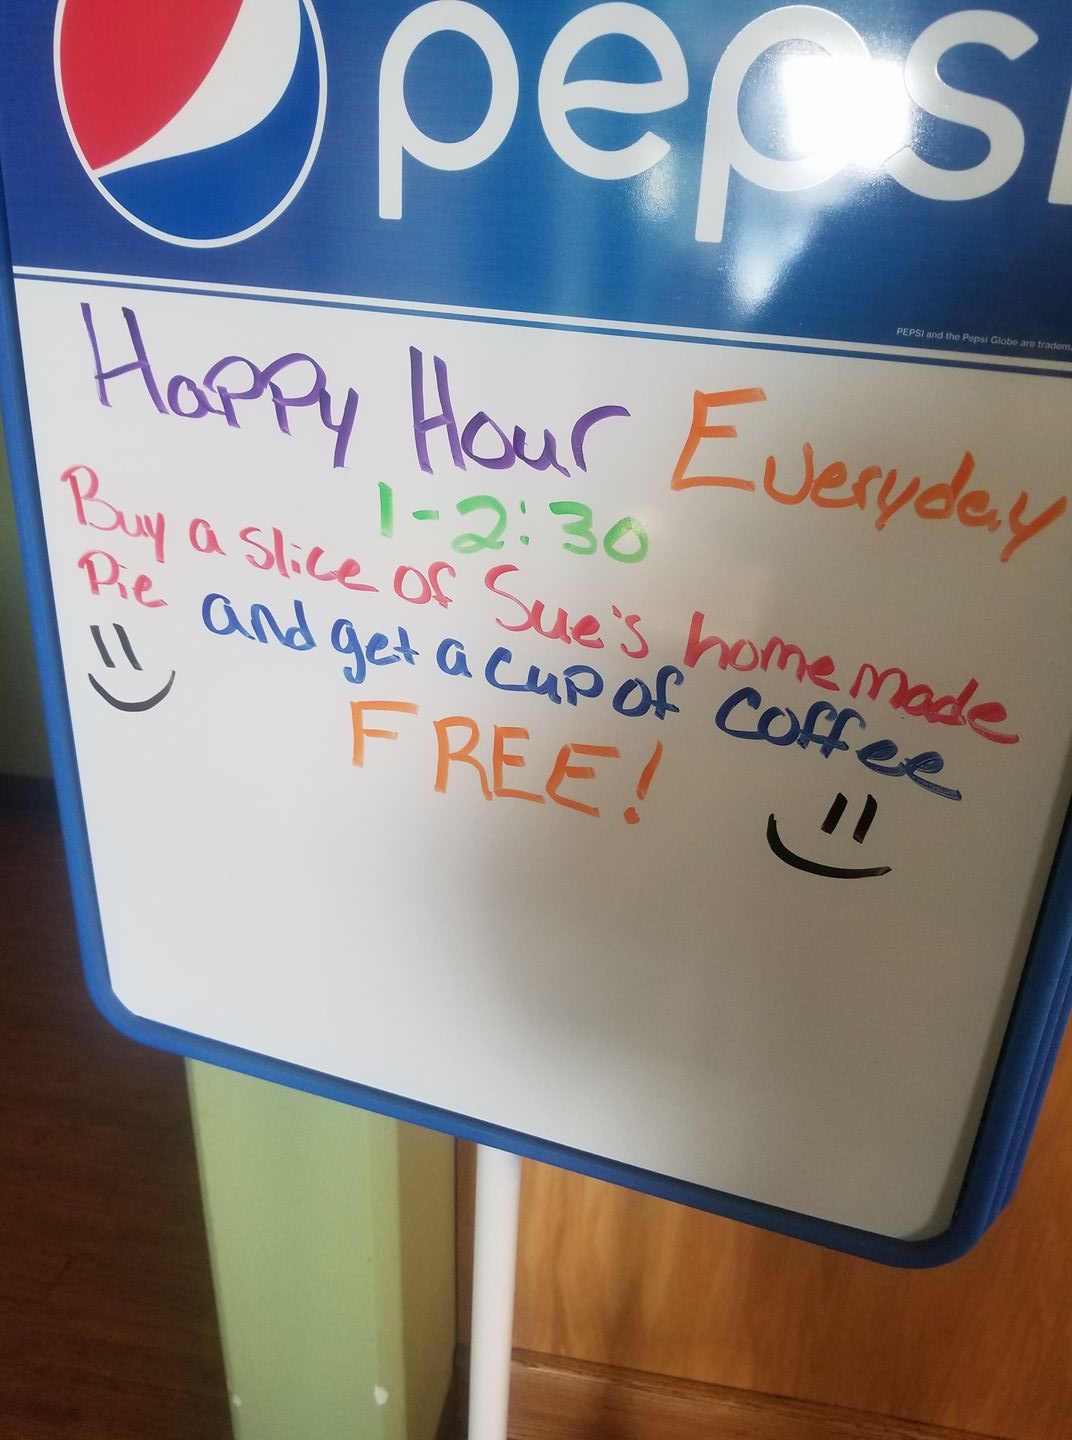 pepsi
PEPSI and the Pepsi Globe are tradem
Happy Hour Everyday
1-2:30
Buy a slice of Sue's homemade
Pie and get a cup of coffee
FREE!